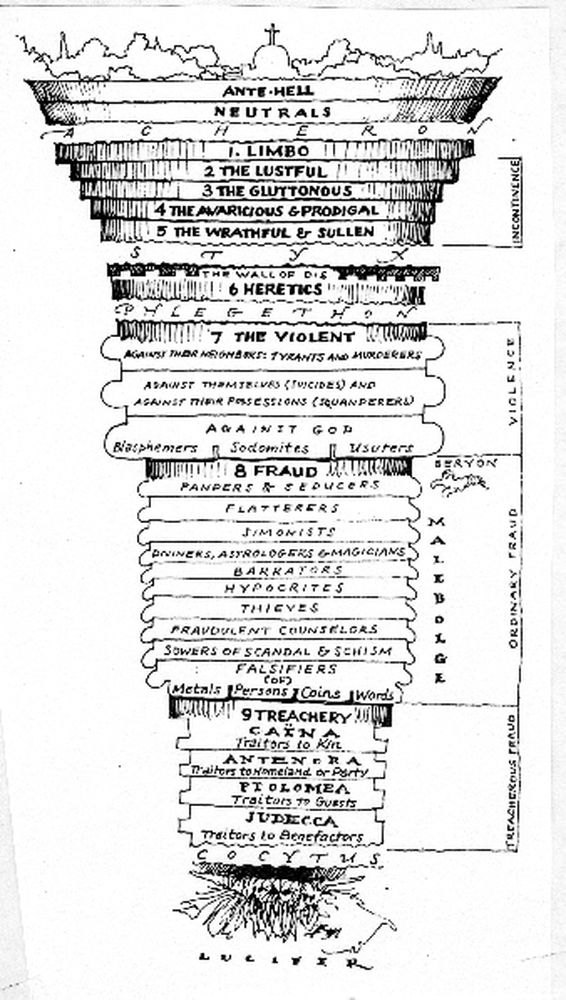 ANTE-HELL
NEUTRALS
ACHERON
1. LIMBO
2 THE LUSTFUL
3 THE GLUTTONOUS
4 THE AVARICIOUS & PRODIGAL
5 THE WRATHFUL & SULLEN
INCONTINENCE
STYX
THE WALL OF DIS
6 HERETICS
PHLEGETHON
7 THE VIOLENT
AGAINST THEIR NEIGHBORS: TYRANTS AND MURDERERS
AGAINST THEMSELVES (SUICIDES) AND
AGAINST THEIR POSSESSIONS (SQUANDERERS)
AGAINST GOD
Blasphemers Sodomites Usurers
VIOLENCE
8 FRAUD
GERYON
PANDERS & SEDUCERS
FLATTERERS
SIMONISTS
DIVINERS, ASTROLOGERS & MAGICIANS
BARRATORS
HYPOCRITES
THIEVES
FRAUDULENT COUNSELORS
SOWERS OF SCANDAL & SCHISM
FALSIFIERS
(OF)
Metals Persons Coins Words
MALEBOLGE
ORDINARY FRAUD
9 TREACHERY
CAÏNA
Traitors to Kin
ANTENORA
Traitors to Homeland or Party
PTOLOMEA
Traitors to Guests
JUDECCA
Traitors to Benefactors
TREACHEROUS FRAUD
COCYTUS
LUCIFER